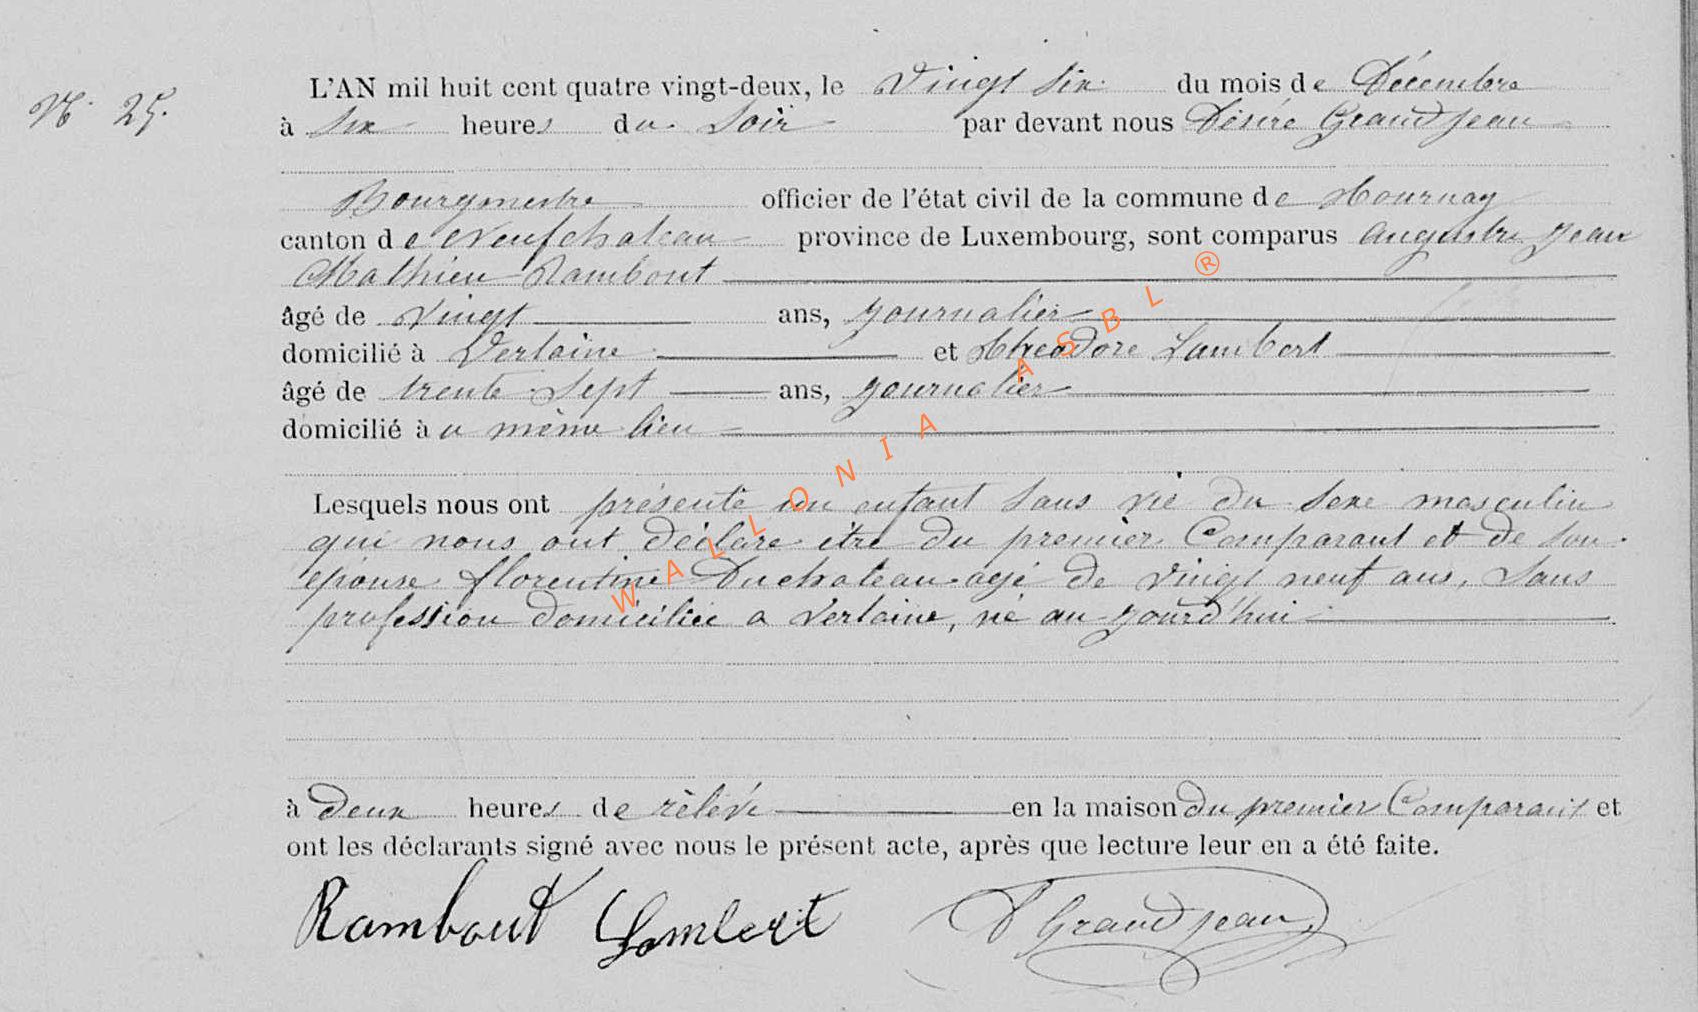 N° 25.
L'AN mil huit cent quatre vingt-deux, le Vingt Six du mois de Décembre
à six heures du Soir par devant nous Désiré Grandjean
Bourgmestre officier de l'état civil de la commune de Tournay
canton de Neufchateau province de Luxembourg, sont comparus Augustre Jean
Mathieu Rambout
âgé de vingt ans, journalier
domicilié à Verlaine et Théodore Lambert
âgé de trente sept ans, journalier
domicilié à u même lieu
Lesquels nous ont présenté un enfant sans vie du sexe masculin
qui nous ont déclare être du premier Comparant et de son
épouse florentine Duchateau agé de vingt neuf ans, sans
profession domiciliée a Verlaine, né au jourd'hui
à Deux heures de rélévé en la maison du premier Comparant et
ont les déclarants signé avec nous le présent acte, après que lecture leur en a été faite.
Rambout Lambert D Grandjean
WALLONIA ASBL ®